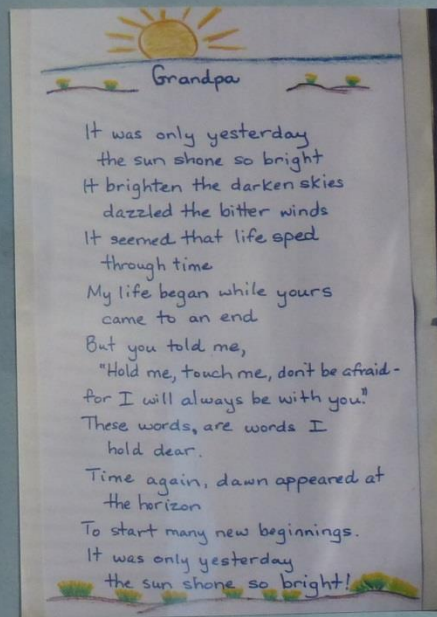 Grandpa
It was only yesterday
the sun shone so bright
It brighten the darken skies
dazzled the bitter winds
It seemed that life sped
through time
My life began while yours
came to an end
But you told me,
"Hold me, touch me, don't be afraid-
for I will always be with you."
These words, are words I
hold dear.
Time again, dawn appeared at
the horizon
To start many new beginnings.
It was only yesterday
the sun shone so bright!